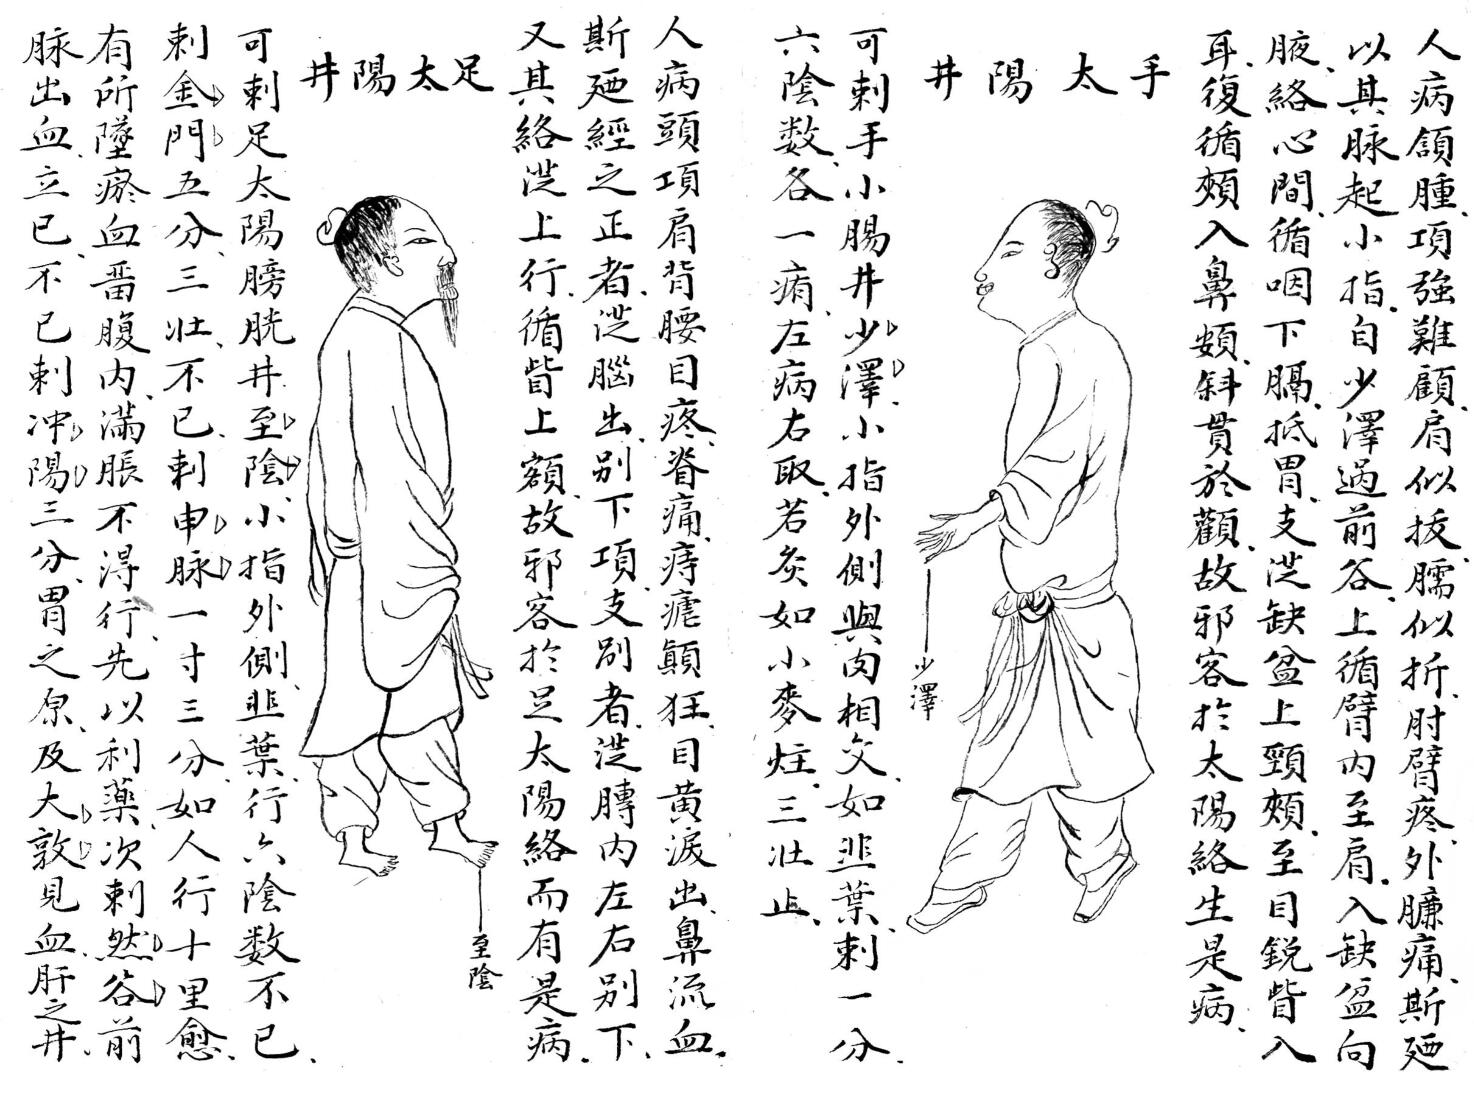 人病頷腫項強難顧肩似拔臑似折肘臂疼外臁痛斯廼
以其脉起小指自少澤過前谷上循臂内至肩入缺盆向
腋絡心間循咽下膈抵胃支従缺盆上頸頰至目鋭眥入
耳復循頰入鼻頞斜貫於顴故邪客於太陽絡生是病
手太陽井
少澤
可刺手小腸井少澤小指外側與肉相交如韭葉刺一分
六陰数各一痏左病右取若灸如小麥炷三壮止
人病頭項肩背腰目疼脊痛痔瘧顛狂目黄淚出鼻流血
斯廼經之正者従腦出别下項支别者従膊内左右别下
又其絡従上行循眥上額故邪客於足太陽絡而有是病
足太陽井
至陰
可刺足太陽膀胱井至陰小指外側韭葉行六陰数不已
刺金門五分三壮不已刺申脉一寸三分如人行十里愈
有所墜瘀血畱腹内満脹不淂行先以利藥次刺然谷前
脉出血立已不已刺冲陽三分胃之原及大敦見血肝之井